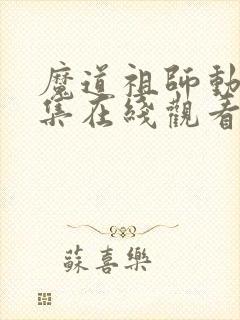 魔道祖師動
集在綫觀看
蘇喜樂